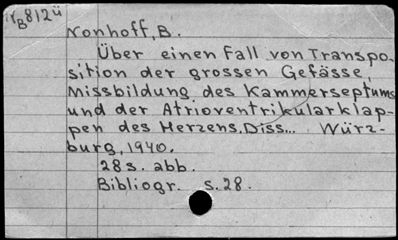 B812ü
Nonhoff, B.
Über einen Fall von Transpo-
sition der grossen Gefässe,
Missbildung des Kammerseptums
und der Atrioventrikularklap-
pen des Herzens. Diss... Würz-
burg, 1940.
28 s. abb.
Bibliogr. s. 28.